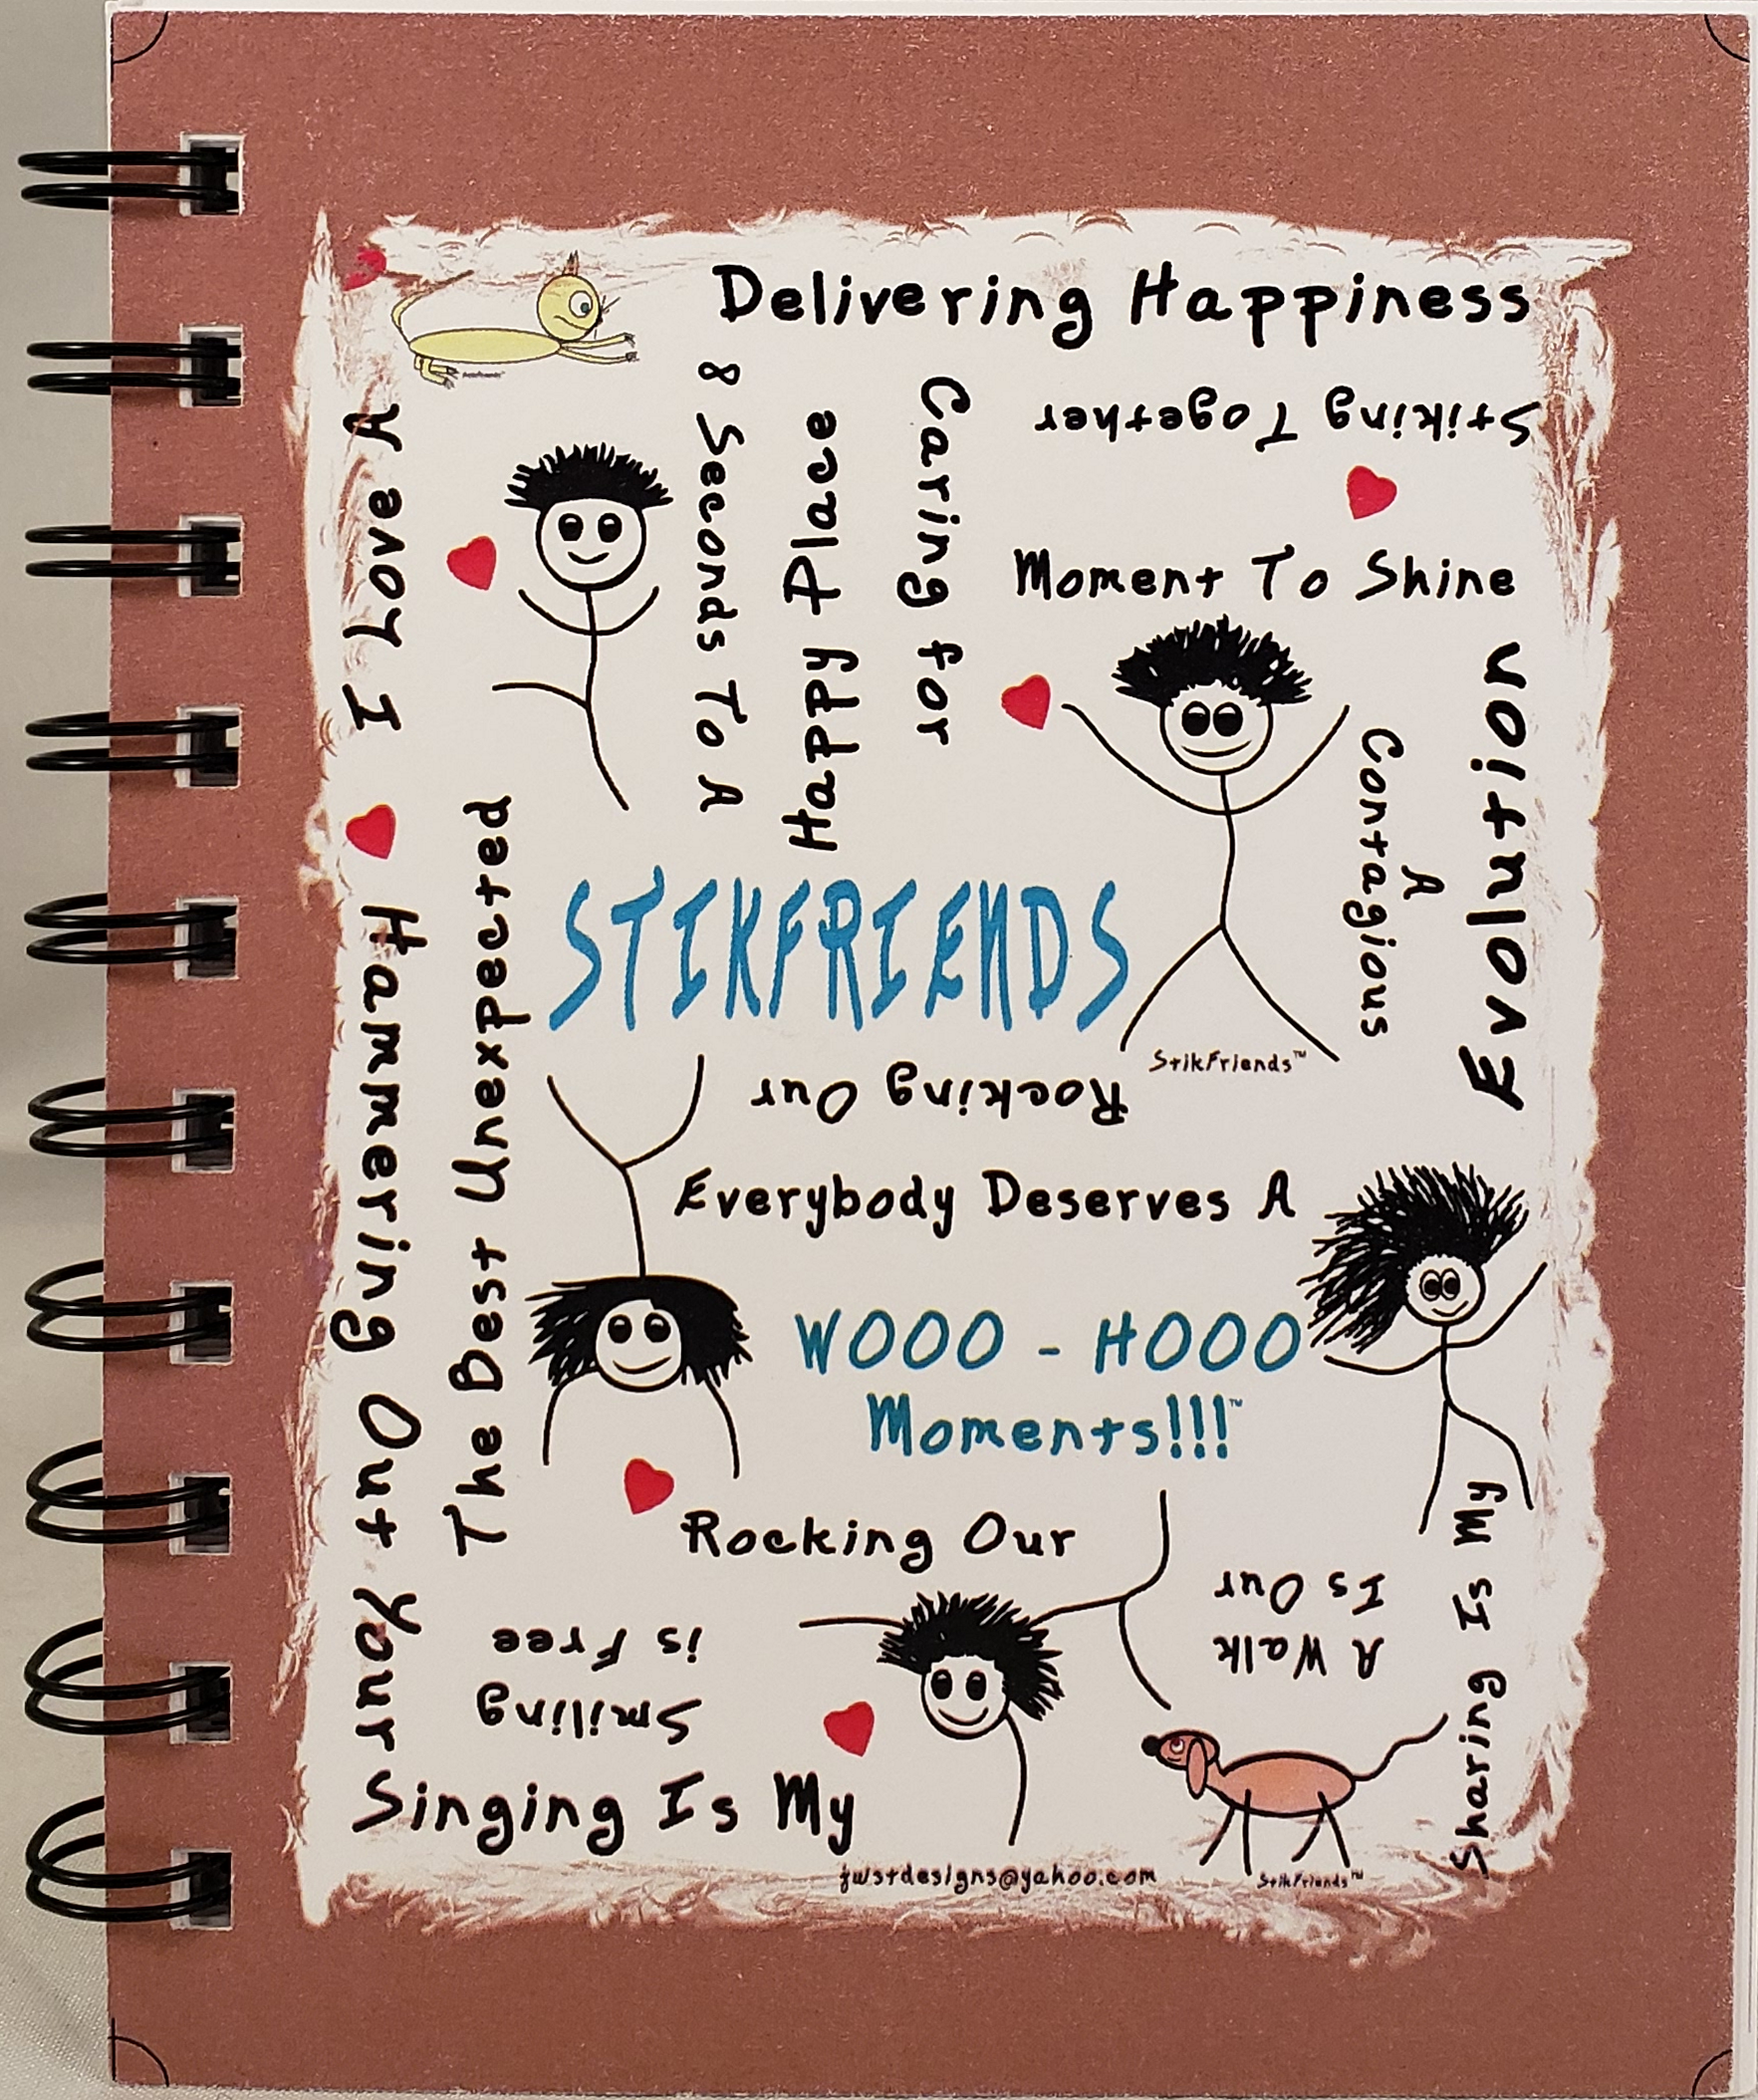 Delivering Happiness
StikFriends™
Stiking Together
I Love A
8 Seconds To A
Happy Place
Caring for
Moment To Shine
A
Contagious
Evolution
STIKFRIENDS
StikFriends™
Rocking Our
Hammering Out Your
The Best Unexpected
Everybody Deserves A
WOOO - HOOO
Moments!!!™
Rocking Our
A Walk
Is Our
Smiling
is Free
Sharing Is My
Singing Is My
jwstdesigns@yahoo.com
StikFriends™